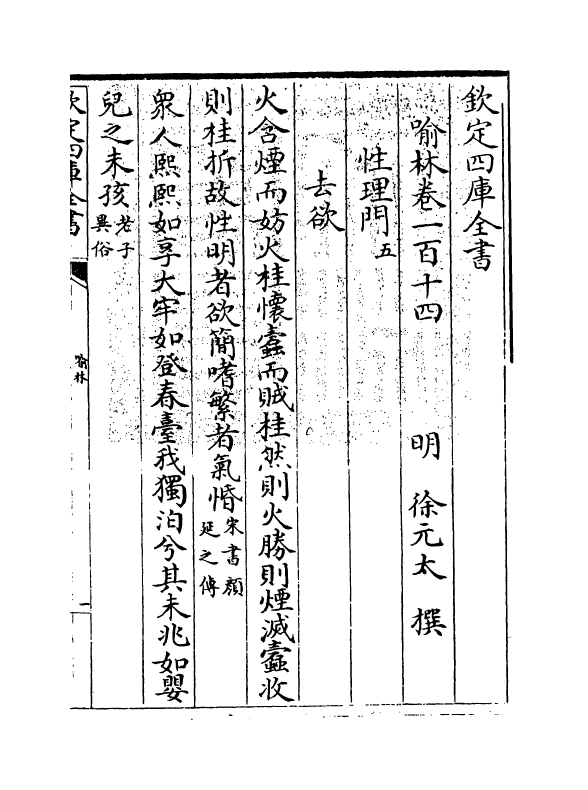 欽定四庫全書
喻林卷一百十四　明　徐元太　撰
性理門五
去欲
火含煙而妨火桂懷蠹而賊桂然則火勝則煙滅蠹收
則桂折故性明者欲簡嗜繁者氣惛宋書顏延之傳
衆人熙熙如享大牢如登春臺我獨泊兮其未兆如嬰
兒之未孩老子異俗
欽定四庫全書
喻林
一